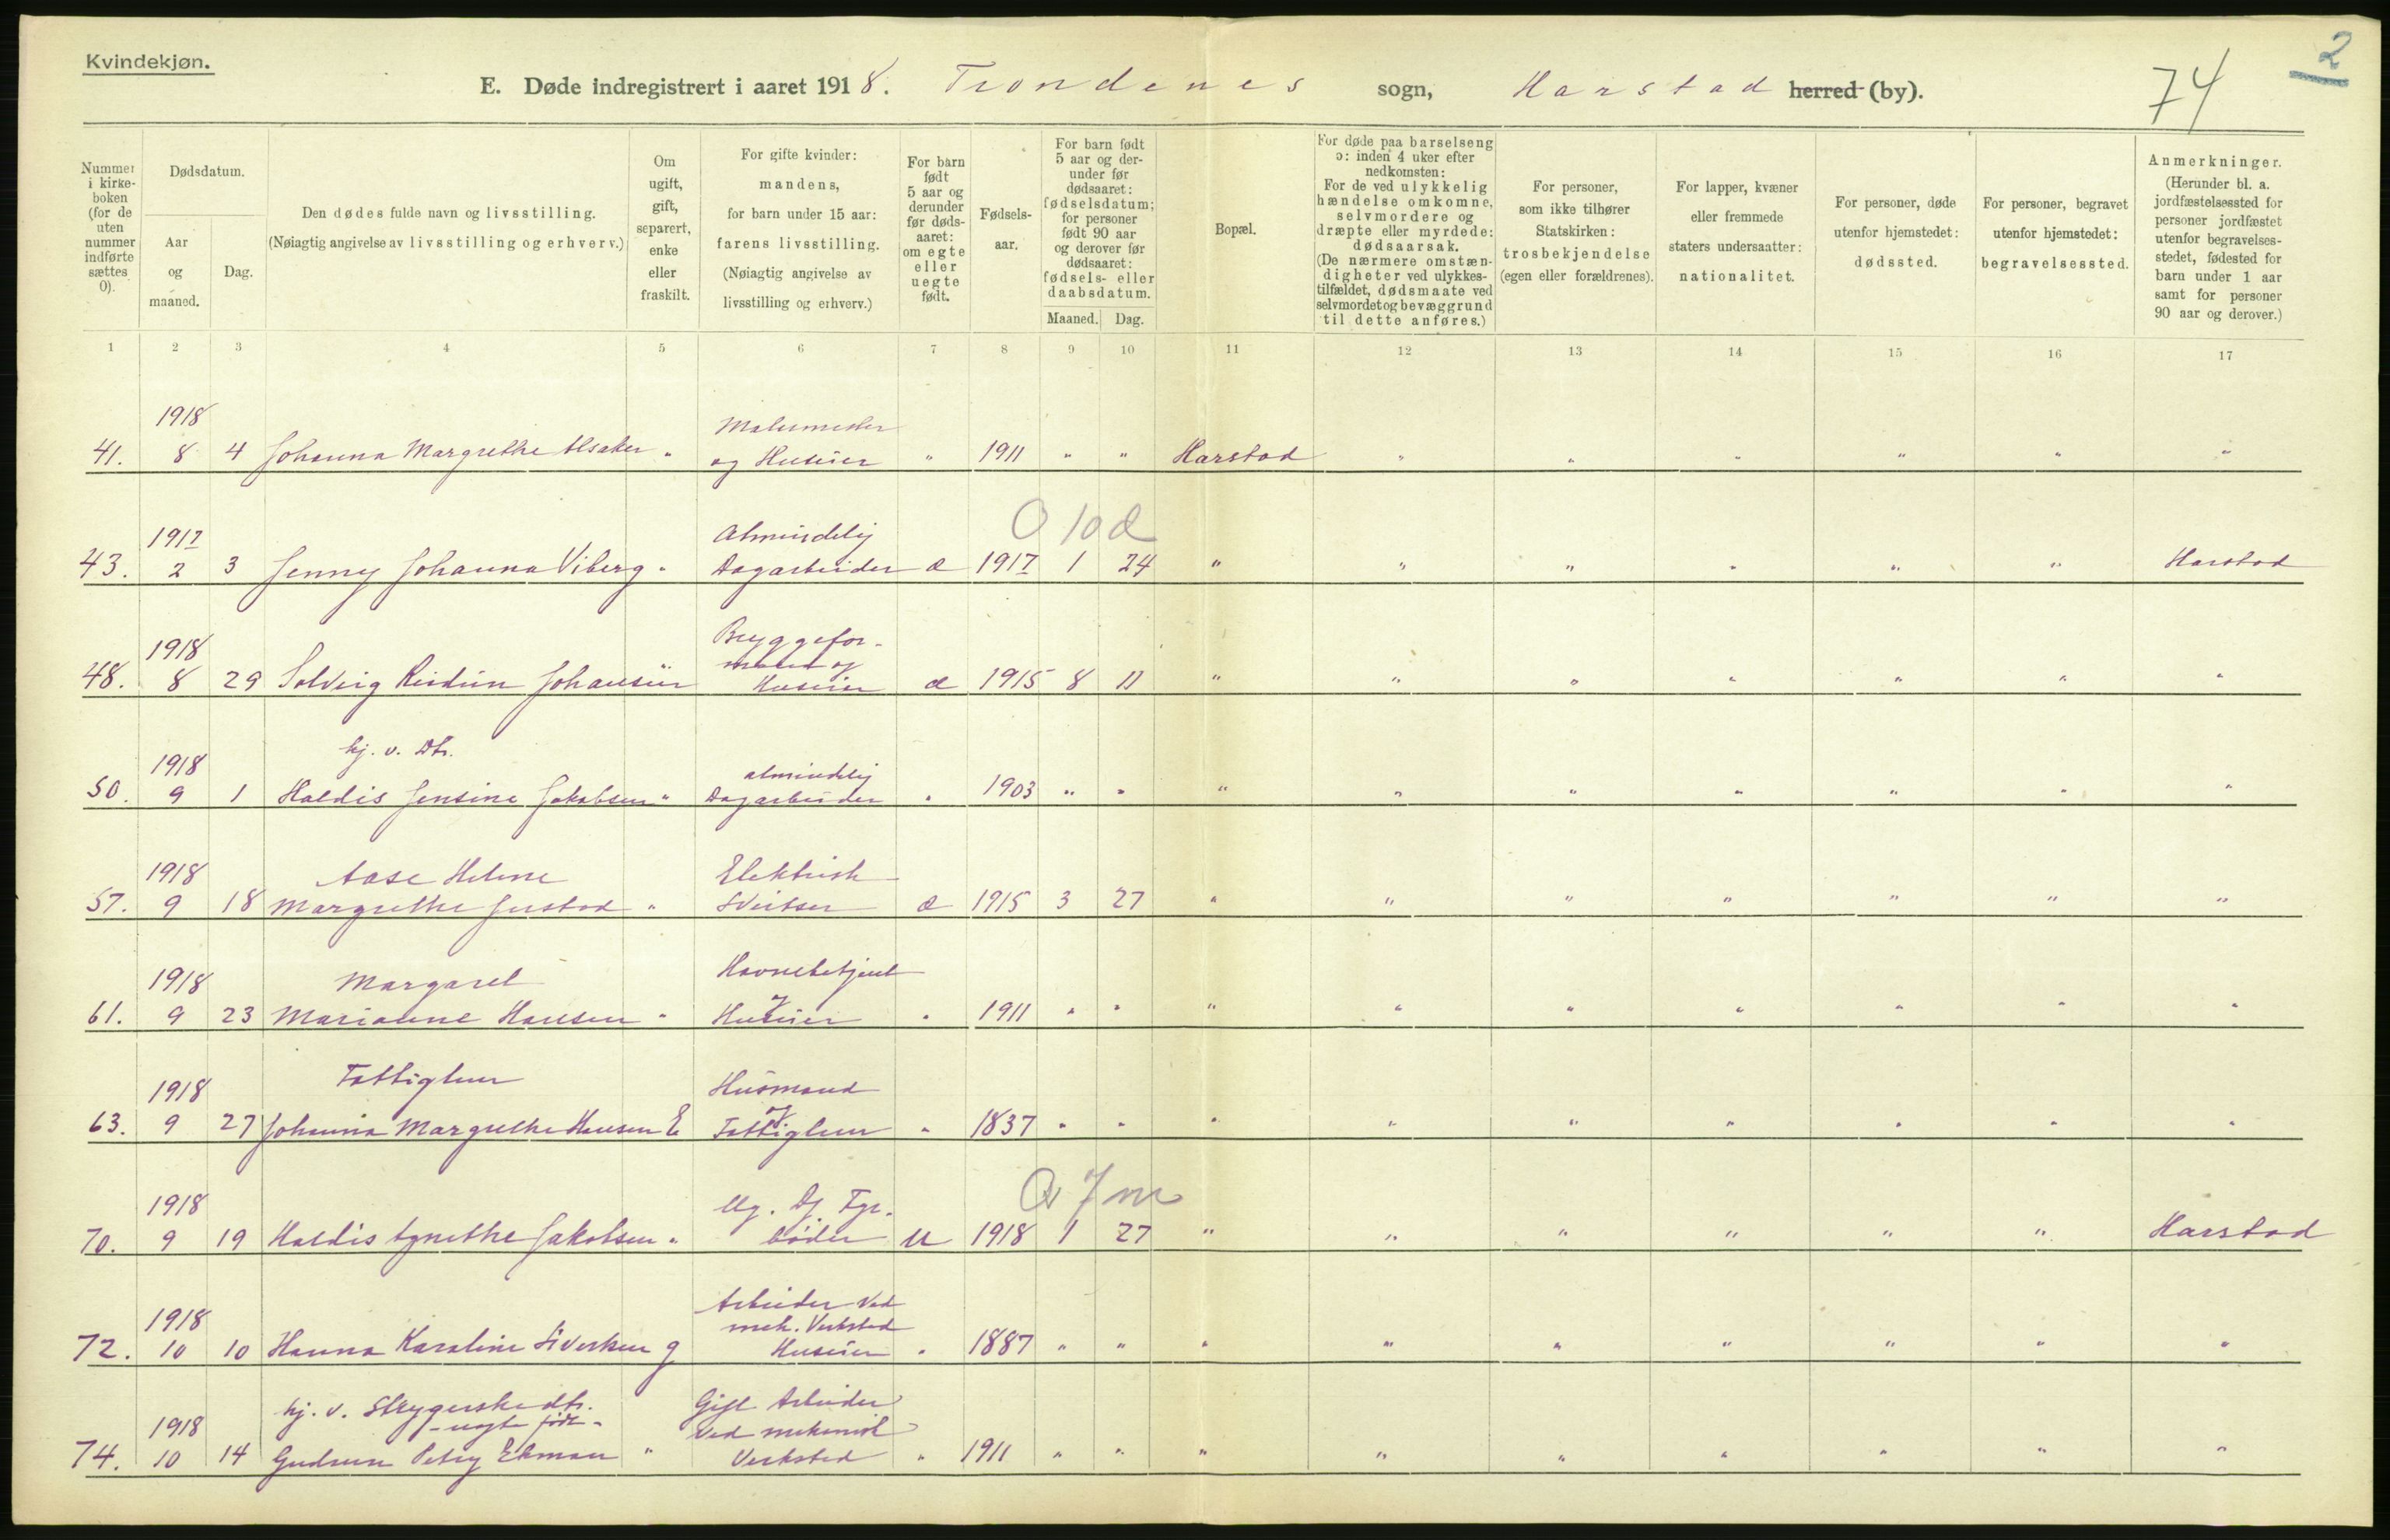 Kvindekjøn.
2
74
E. Døde indregistrert i aaret 1918. Trondenes sogn, Harstad herred (by).
Nummer i kirkeboken (for de uten nummer indførte sættes 0).
Dødsdatum.
Aar og maaned.
Dag.
Den dødes fulde navn og livsstilling.
(Nøiagtig angivelse av livsstilling og erhverv.)
Om ugift, gift, separert, enke eller fraskilt.
For gifte kvinder: mandens, for barn under 15 aar: farens livsstilling. (Nøiagtig angivelse av livsstilling og erhverv.)
For barn født 5 aar og derunder før dødsaaret: om egte eller uegte født.
Fødselsaar.
For barn født 5 aar og derunder før dødsaaret: fødselsdatum; for personer født 90 aar og derover før dødsaaret: fødsels- eller daabsdatum.
Maaned. Dag.
Bopæl.
For døde paa barselseng ɔ: inden 4 uker efter nedkomsten: For de ved ulykkelig hændelse omkomne, selvmordere og dræpte eller myrdede: dødsaarsak. (De nærmere omstændigheter ved ulykkestilfældet, dødsmaate ved selvmordet og bevæggrund til dette anføres.)
For personer, som ikke tilhører Statskirken: trosbekjendelse (egen eller forældrenes).
For lapper, kvæner eller fremmede staters undersaatter: nationalitet.
For personer, døde utenfor hjemstedet: dødssted.
For personer, begravet utenfor hjemstedet: begravelsessted.
Anmerkninger. (Herunder bl. a. jordfæstelsessted for personer jordfæstet utenfor begravelsesstedet, fødested for barn under 1 aar samt for personer 90 aar og derover.)
1 2 3 4 5 6 7 8 9 10 11 12 13 14 15 16 17
1918 Malermester
41. 8 4 Johanna Margrethe Alsaker " og Huseier " 1911 " " Harstad " " " " " "
1917 Almindelig 0 10 d
43. 2 3 Jenny Johanna Viberg " Dagarbeider æ 1917 1 24 " " " " " " Harstad
1918 Bryggefor-
mand og
48. 8 29 Solveig Reidun Johansen Huseier æ 1915 8 11 " " " " " " "
hj. v. Dtr.
1918 almindelig
50. 9 1 Haldis Jensine Jakobsen " Dagarbeider " 1903 " " " " " " " " "
1918 Aase Helene Elektrisk
57. 9 18 Margrethe Jerstad " Sveitser æ 1915 3 27 " " " " " " "
1918 Margaret Havnebetjent
61. 9 23 Marianne Hansen " og Huseier " 1911 " " " " " " " " "
1918 Fattiglem Husmand
63. 9 27 Johanna Margrethe Hansen E og Fattiglem " 1837 " " " " " " " " "
1918 Ug. Dj. Fyr- 0 7 m
70. 9 19 Haldis Agnethe Jakobsen " bøder u 1918 1 27 " " " " " " Harstad
1918 Arbeider ved
mek. Verksted
72. 10 10 Hanna Karoline Sivertsen g Huseier " 1887 " " " " " " " " "
hj. v. Strygerskedtr. Gift Arbeider
1918 - uegte født - ved mekanisk
74. 10 14 Gudrun Petry Ekman " Verksted " 1911 " " " " " " " " "